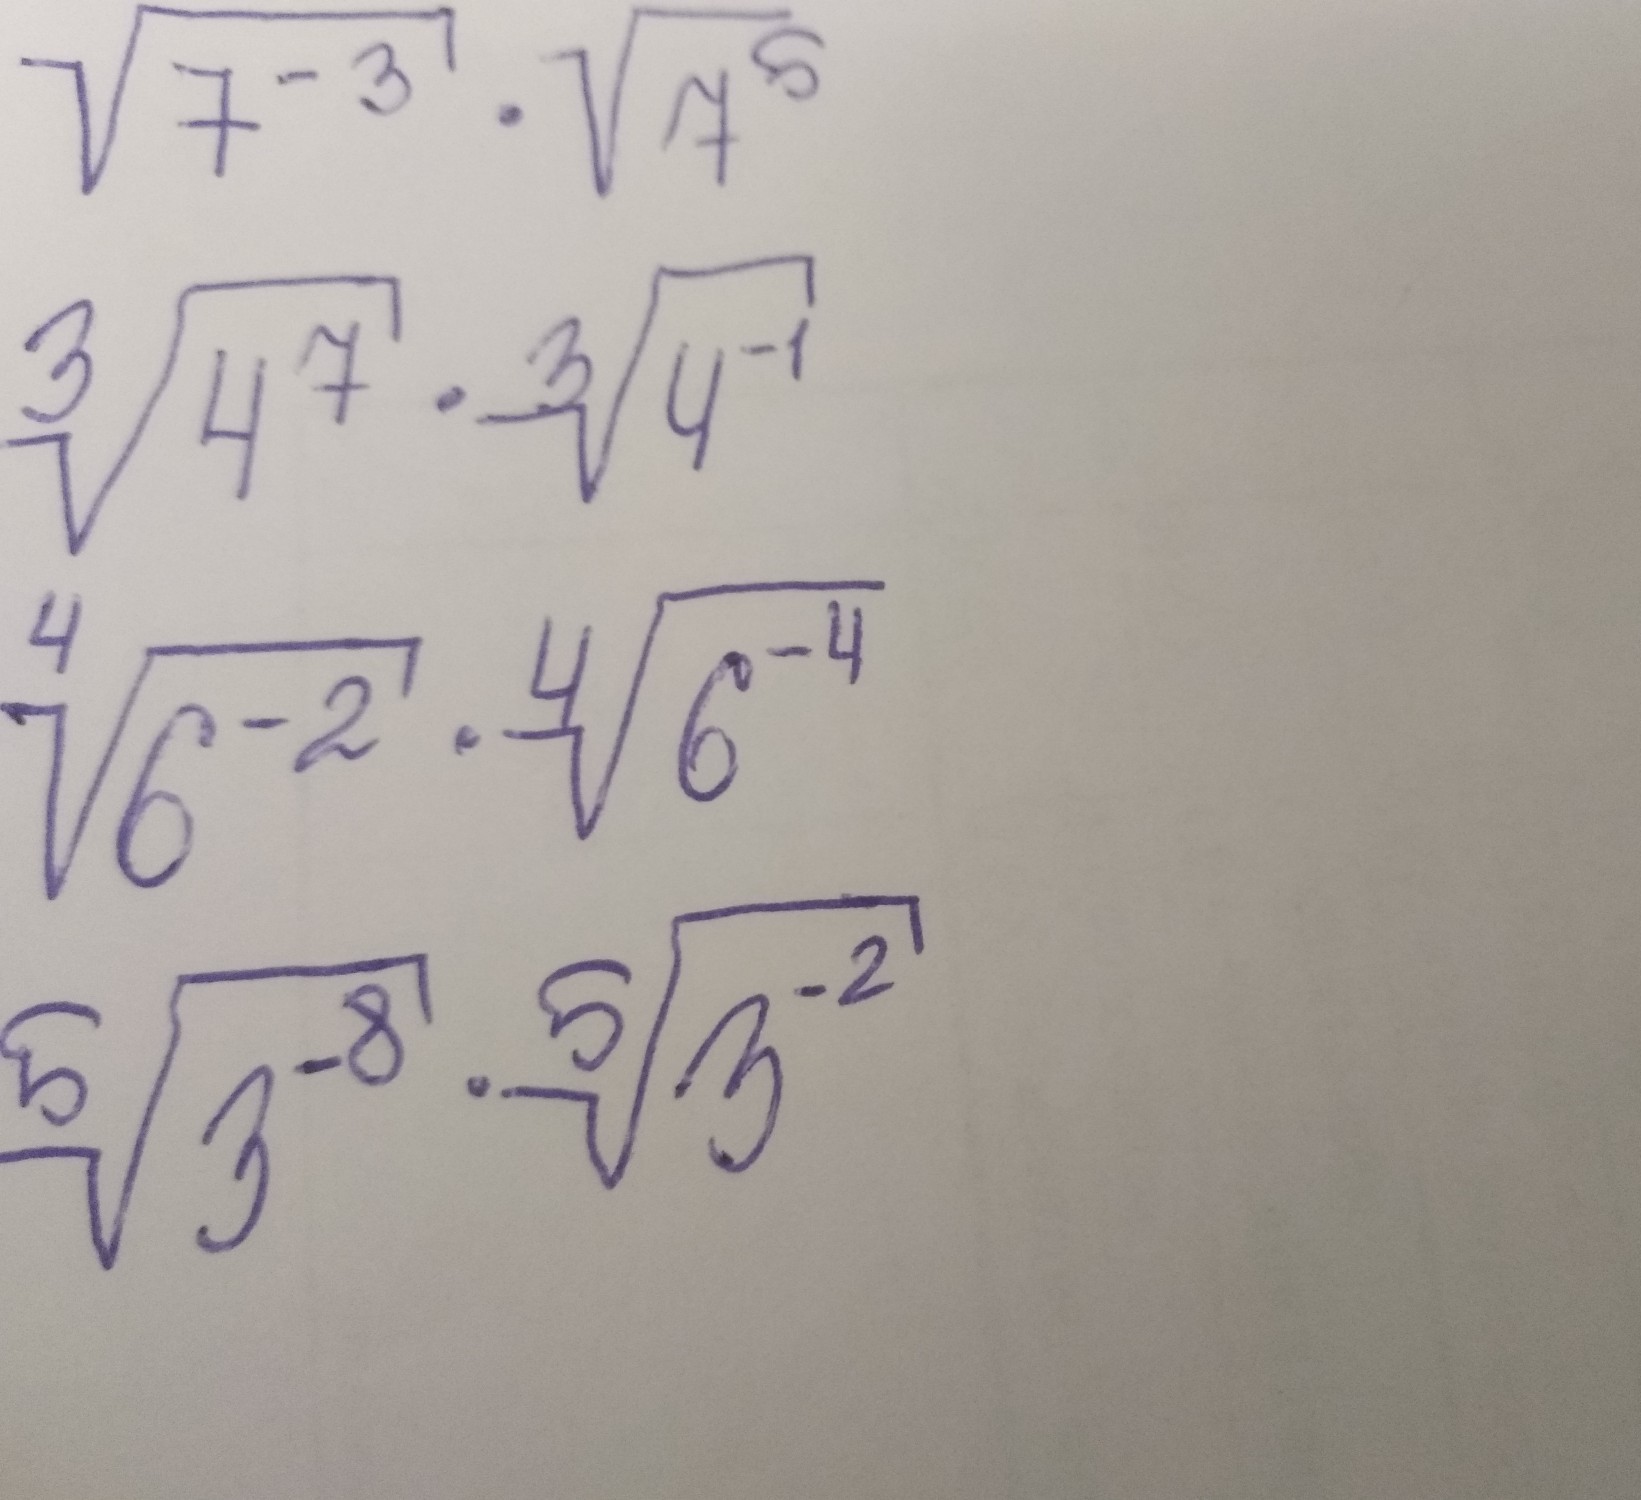 √7⁻³ · √7⁵
³√4⁷ · ³√4⁻¹
⁴√6⁻² · ⁴√6⁻⁴
⁵√3⁻⁸ · ⁵√3⁻²